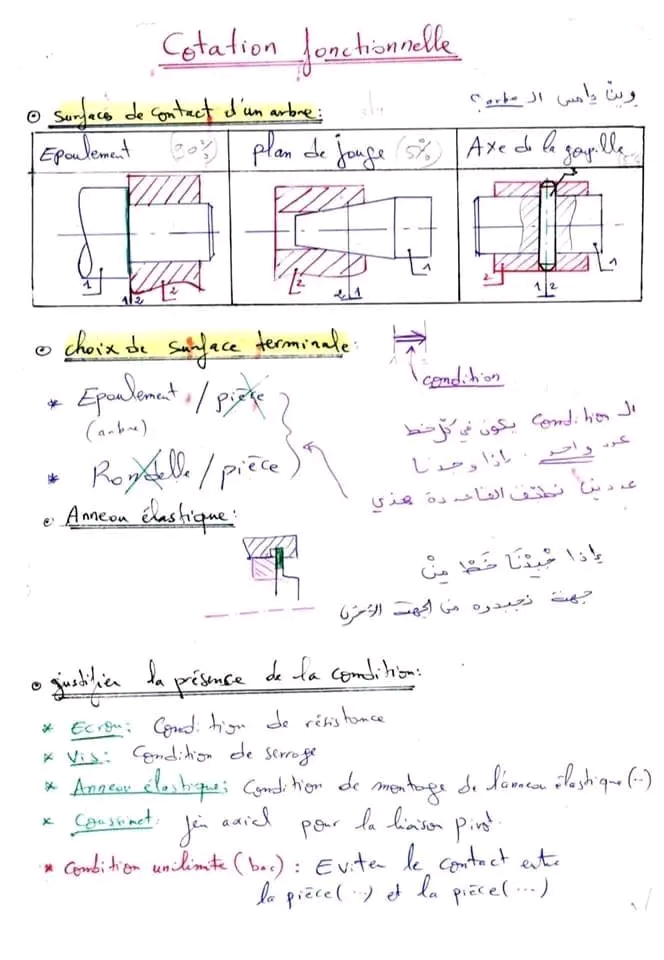 Cotation fonctionnelle
وين يلمس الـ arbre؟
⊙ Surfaces de contact d'un arbre:
Epaulement (90%)
plan de jauge (5%)
Axe de la goupille (5%)
3
1 1 2 2
2 2 1 1
2 1 2 1
⊙ choix de surface terminale:
condition
* Epaulement / pièce
(arbre)
* Rondelle / pièce
الـ condition يكون في كل خط
عدد واحد. إذا وجدنا
عددين نطبق القاعدة هذي
⊙ Anneau élastique:
إذا جبدنا خط من
جهة نجبدوه من الجهة الأخرى
⊙ justifier la présence de la condition:
* Ecrou: Condition de résistance
* Vis: Condition de serrage
* Anneau élastique: Condition de montage de l'anneau élastique (..)
* Coussinet: Jeu axial pour la liaison pivot.
* Condition unilimite (bac): Eviter le contact entre
la pièce (...) et la pièce (...)